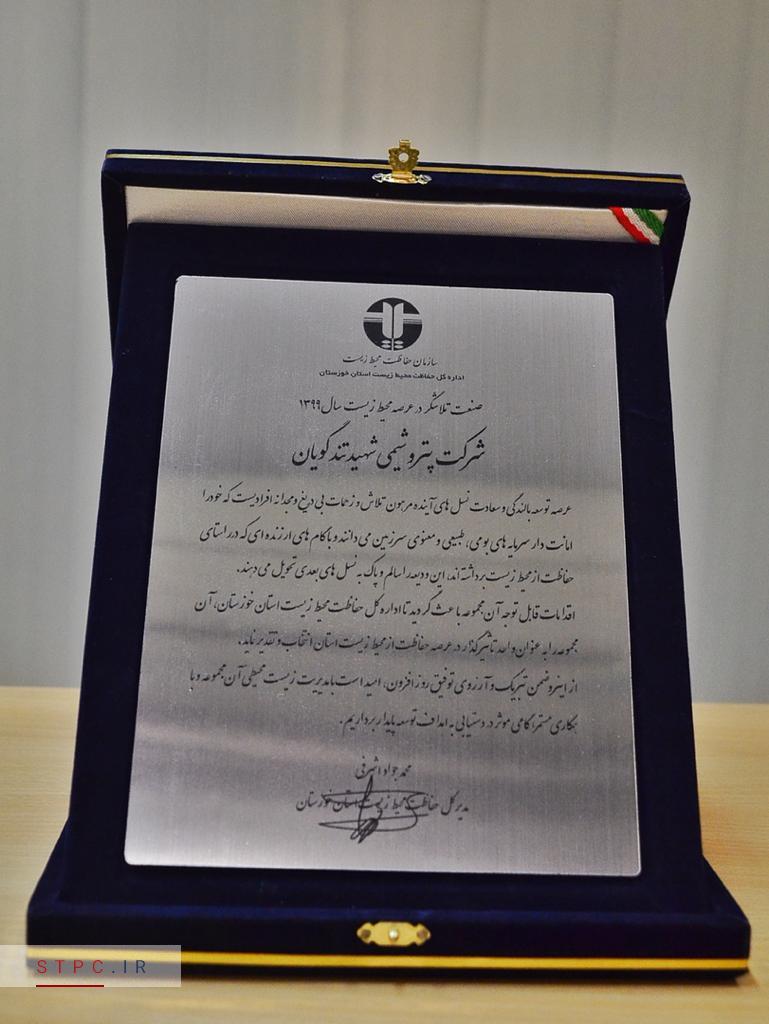 سازمان حفاظت محیط زیست
اداره کل حفاظت محیط زیست استان خوزستان
صنعت تلاشگر در عرصه محیط زیست سال ۱۳۹۹
شرکت پتروشیمی شهید تندگویان
عرصه توسعه بالندگی و سعادت نسل های آینده مرهون تلاش و زحمات بی دریغ و مجدانه افرادیست که خود را
امانت دار سرمایه های بومی، طبیعی و معنوی سرزمین می دانند و با گام های ارزنده ای که در راستای
حفاظت از محیط زیست برداشته اند، این ودیعه را سالم و پاک به نسل های بعدی تحویل می دهند.
اقدامات قابل توجه آن مجموعه باعث گردید تا اداره کل حفاظت محیط زیست استان خوزستان، آن
مجموعه را به عنوان واحد تاثیرگذار در عرصه حفاظت از محیط زیست استان انتخاب و تقدیر نماید.
از اینرو ضمن تبریک و آرزوی توفیق روز افزون، امید است با مدیریت زیست محیطی آن مجموعه و با
همکاری مستمر، گامی موثر در دستیابی به اهداف توسعه پایدار برداریم.
محمد جواد اشرفی
مدیر کل حفاظت محیط زیست استان خوزستان
STPC.IR